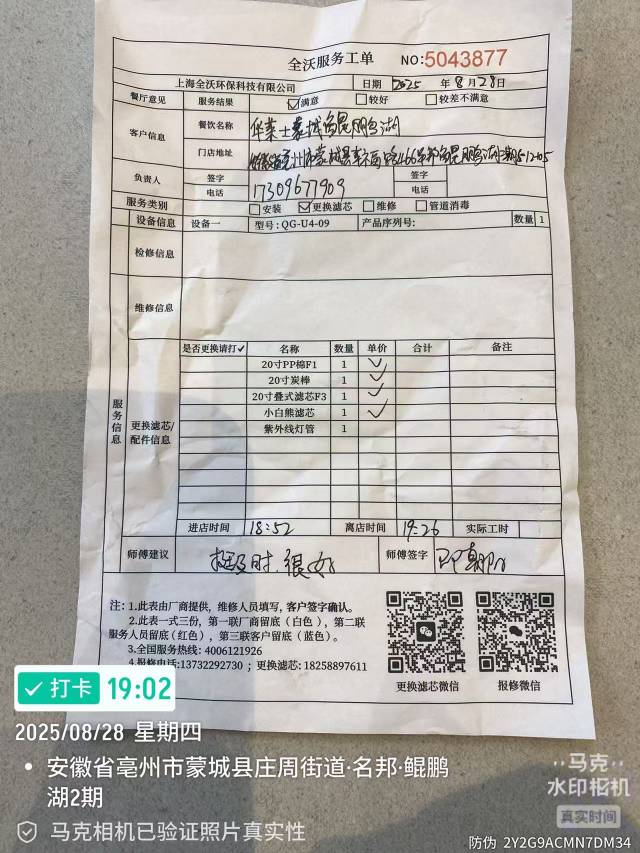 全沃服务工单 NO:5043877
上海全沃环保科技有限公司 日期 2025 年 8 月 28 日
餐厅意见 服务结果 ☑满意 □较好 □较差不满意
客户信息 餐饮名称 华莱士蒙城名邦鲲鹏湖
门店地址 安徽省亳州市蒙城县
负责人 签字 签字
电话 17309677909 电话
服务类别 □安装 ☑更换滤芯 □维修 □管道消毒
设备信息 设备一 型号: QG-U4-09 产品序列号: 数量 1
检修信息
维修信息
服务信息
更换滤芯/配件信息
是否更换请打✓ 名称 数量 单价 合计 备注
20寸PP棉F1 1 ✓
20寸炭棒 1 ✓
20寸叠式滤芯F3 1 ✓
小白熊滤芯 1 ✓
紫外线灯管 1
进店时间 18:52 离店时间 19:26 实际工时
师傅建议 挺及时.很好 师傅签字
注: 1.此表由厂商提供, 维修人员填写, 客户签字确认。
2.此表一式三份, 第一联厂商留底 (白色), 第二联
服务人员留底(红色), 第三联客户留底 (蓝色)。
3.全国服务热线: 4006121926
4.报修电话:13732292730 ; 更换滤芯: 18258897611
更换滤芯微信 报修微信
打卡 19:02
2025/08/28 星期四
安徽省亳州市蒙城县庄周街道·名邦·鲲鹏
湖2期
马克相机已验证照片真实性
马克
水印相机
真实时间
防伪 2Y2G9ACMN7DM34